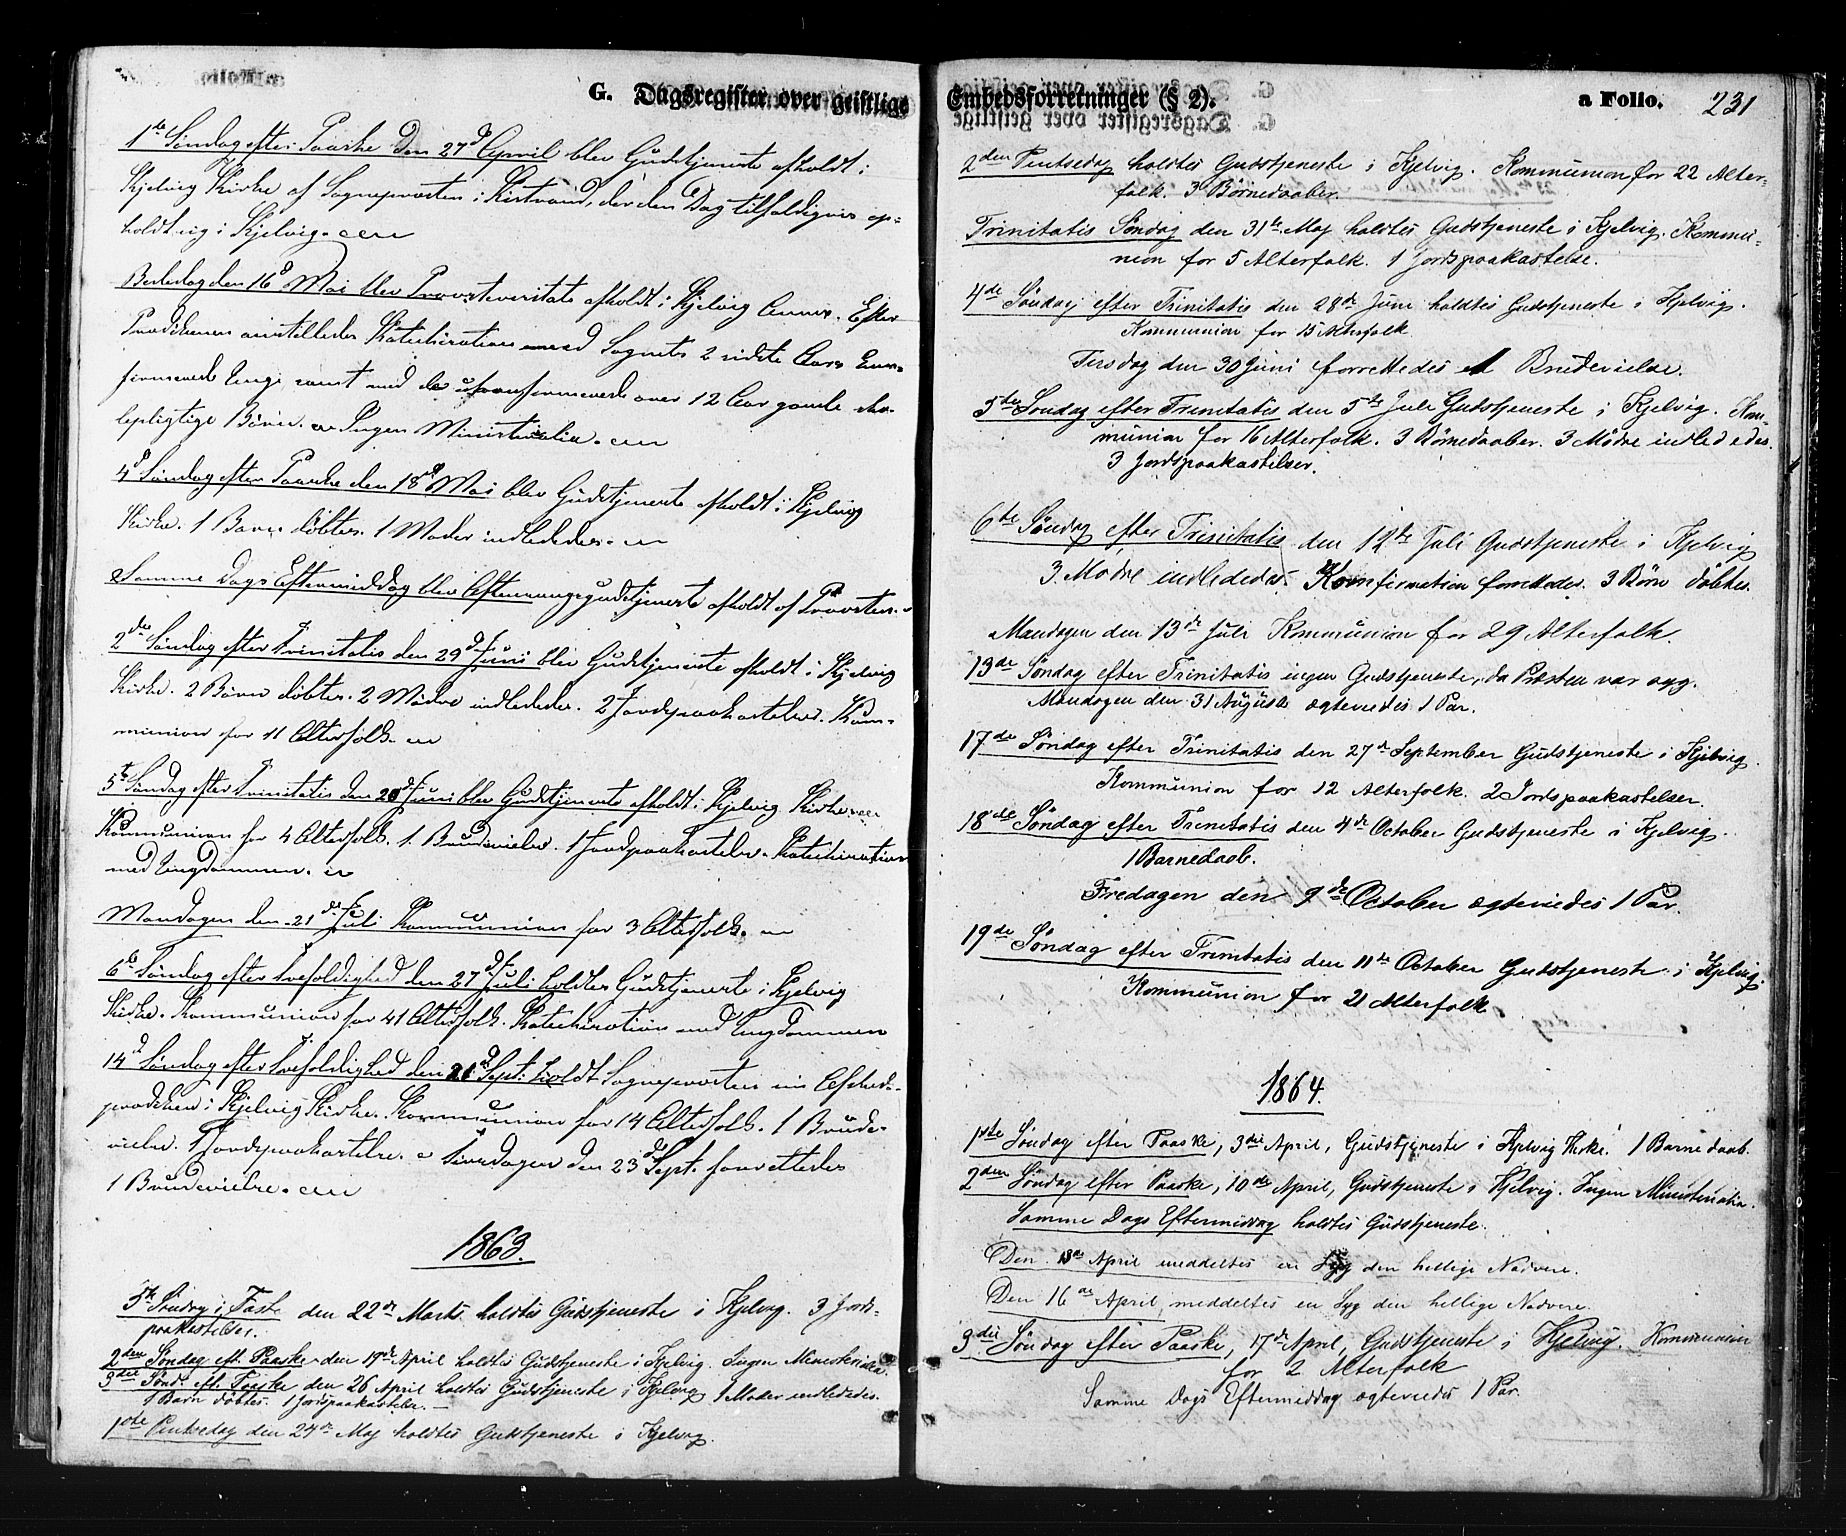 G. Dagsregister over geistlige
1ste Søndag efter Paaske den 27d April blev Gudstjeneste afholdt i
Kjelvig Kirke af Sognepræsten i Kistrand, der den Dag tilfældigvis op-
holdt sig i Kjelvig.
Bededag den 16d Mai blev Provstevisitats afholdt i Kjelvig Annex. Efter
Prædikenen anstilledes Katechisation med Sognets 2 sidste Aars Con-
firmerede Unge samt med de uconfirmerede over 12 Aar gamle sko-
lepligtige Børn. Ingen Ministerialia.
4d Søndag efter Paaske den 18d Mai blev Gudstjeneste afholdt i Kjelvig
Kirke. 1 Barn døbtes. 1 Moder indlededes.
Samme Dags Eftermiddag blev Aftensangsgudstjeneste afholdt af Provsten.
2den Søndag efter Trinitatis den 29d Juni blev Gudstjeneste afholdt i Kjelvig
Kirke. 2 Børn døbtes. 2 Mødre indlededes. 2 Jordspaakastelser. Kom-
munion for 11 Alterfolk.
5te Søndag efter Trinitatis den 20d Juni blev Gudstjeneste afholdt i Kjelvig Kirke
Kommunion for 4 Alterfolk. 1 Brudevielse. 1 Jordspaakastelse. Katechisation
med Ungdommen.
Mandagen den 21de Juli Kommunion for 3 Alterfolk.
6te Søndag efter Trefoldighed den 27d Juli holdtes Gudstjeneste i Kjelvig
Kirke. Kommunion for 41 Alterfolk. Katechisation med Ungdommen
14d Søndag efter Trefoldighed den 21d Sept: holdt Sognepræsten sin Afskeds-
prædiken i Kjelvig Kirke. Kommunion for 14 Alterfolk. 1 Brude-
vielse. 1 Jordspaakastelse. Tirsdagen den 23d Sept. forrettedes
1 Brudevielse.
1863.
5te Søndag i Faste den 22de Marts holdtes Gudstjeneste i Kjelvig. 3 Jords-
paakastelser.
2den Søndag eft. Paaske den 19de April holdtes Gudstjeneste i Kjelvig. Ingen Ministerialia.
3die Sønd. eft. Paaske den 26 April holdtes Gudstjeneste i Kjelvig 1 Moder indlededes.
1 Barn døbtes. 1 Jordspaakastelse.
1ste Pintsedag den 24de Maj holdtes Gudstjeneste i Kjelvig.
Embedsforretninger (§ 2). a Folio. 231
2den Pintsedag holdtes Gudstjeneste i Kjelvig. Kommunion for 22 Alter-
folk. 3 Børnedaaber.
Trinitatis Søndag den 31te Maj holdtes Gudstjeneste i Kjelvig. Kommu-
nion for 5 Alterfolk. 1 Jordspaakastelse.
4de Søndag efter Trinitatis den 28de Juni holdtes Gudstjeneste i Kjelvig.
Kommunion for 15 Alterfolk
Tirsdag den 30 Juni forrettedes 1 Brudevielse.
5te Søndag efter Trinitatis den 5te Juli Gudstjeneste i Kjelvig. Kom-
munion for 16 Alterfolk. 3 Børnedaaber. 3 Mødre indlededes.
3 Jordspaakastelser.
6te Søndag efter Trinitatis den 12te Juli Gudstjeneste i Kjelvig
3 Mødre indlededes. Konfirmation forrettedes. 3 Børn døbtes.
Mandagen den 13de Juli Kommunion for 29 Alterfolk.
13de Søndag efter Trinitatis ingen Gudstjeneste, da Præsten var syg.
Mandagen den 31 August ægteviedes 1 Par.
17de Søndag efter Trinitatis den 27de September Gudstjeneste i Kjelvig.
Kommunion for 12 Alterfolk. 2 Jordspaakastelser.
18de Søndag efter Trinitatis den 4de October Gudstjeneste i Kjelvig.
1 Barnedaab.
Fredagen den 9de October ægteviedes 1 Par.
19de Søndag efter Trinitatis den 11te October Gudstjeneste i Kjelvig.
Kommunion for 21 Alterfolk
1864.
1ste Søndag efter Paaske, 3die April, Gudstjeneste i Kjelvig Kirke. 1 Barnedaab.
2den Søndag efter Paaske, 10de April, Gudstjeneste i Kjelvig. Ingen Ministerialia.
Samme Dags Eftermiddag holdtes Gudstjeneste.
Den 13de April meddeltes en Syg den hellige Nadvere.
Den 16de April, meddeltes en Syg den hellige Nadvere.
3die Søndag efter Paaske, 17de April, Gudstjeneste i Kjelvig. Kommunion
for 2 Alterfolk
Samme Dags Eftermiddag ægteviedes 1 Par.